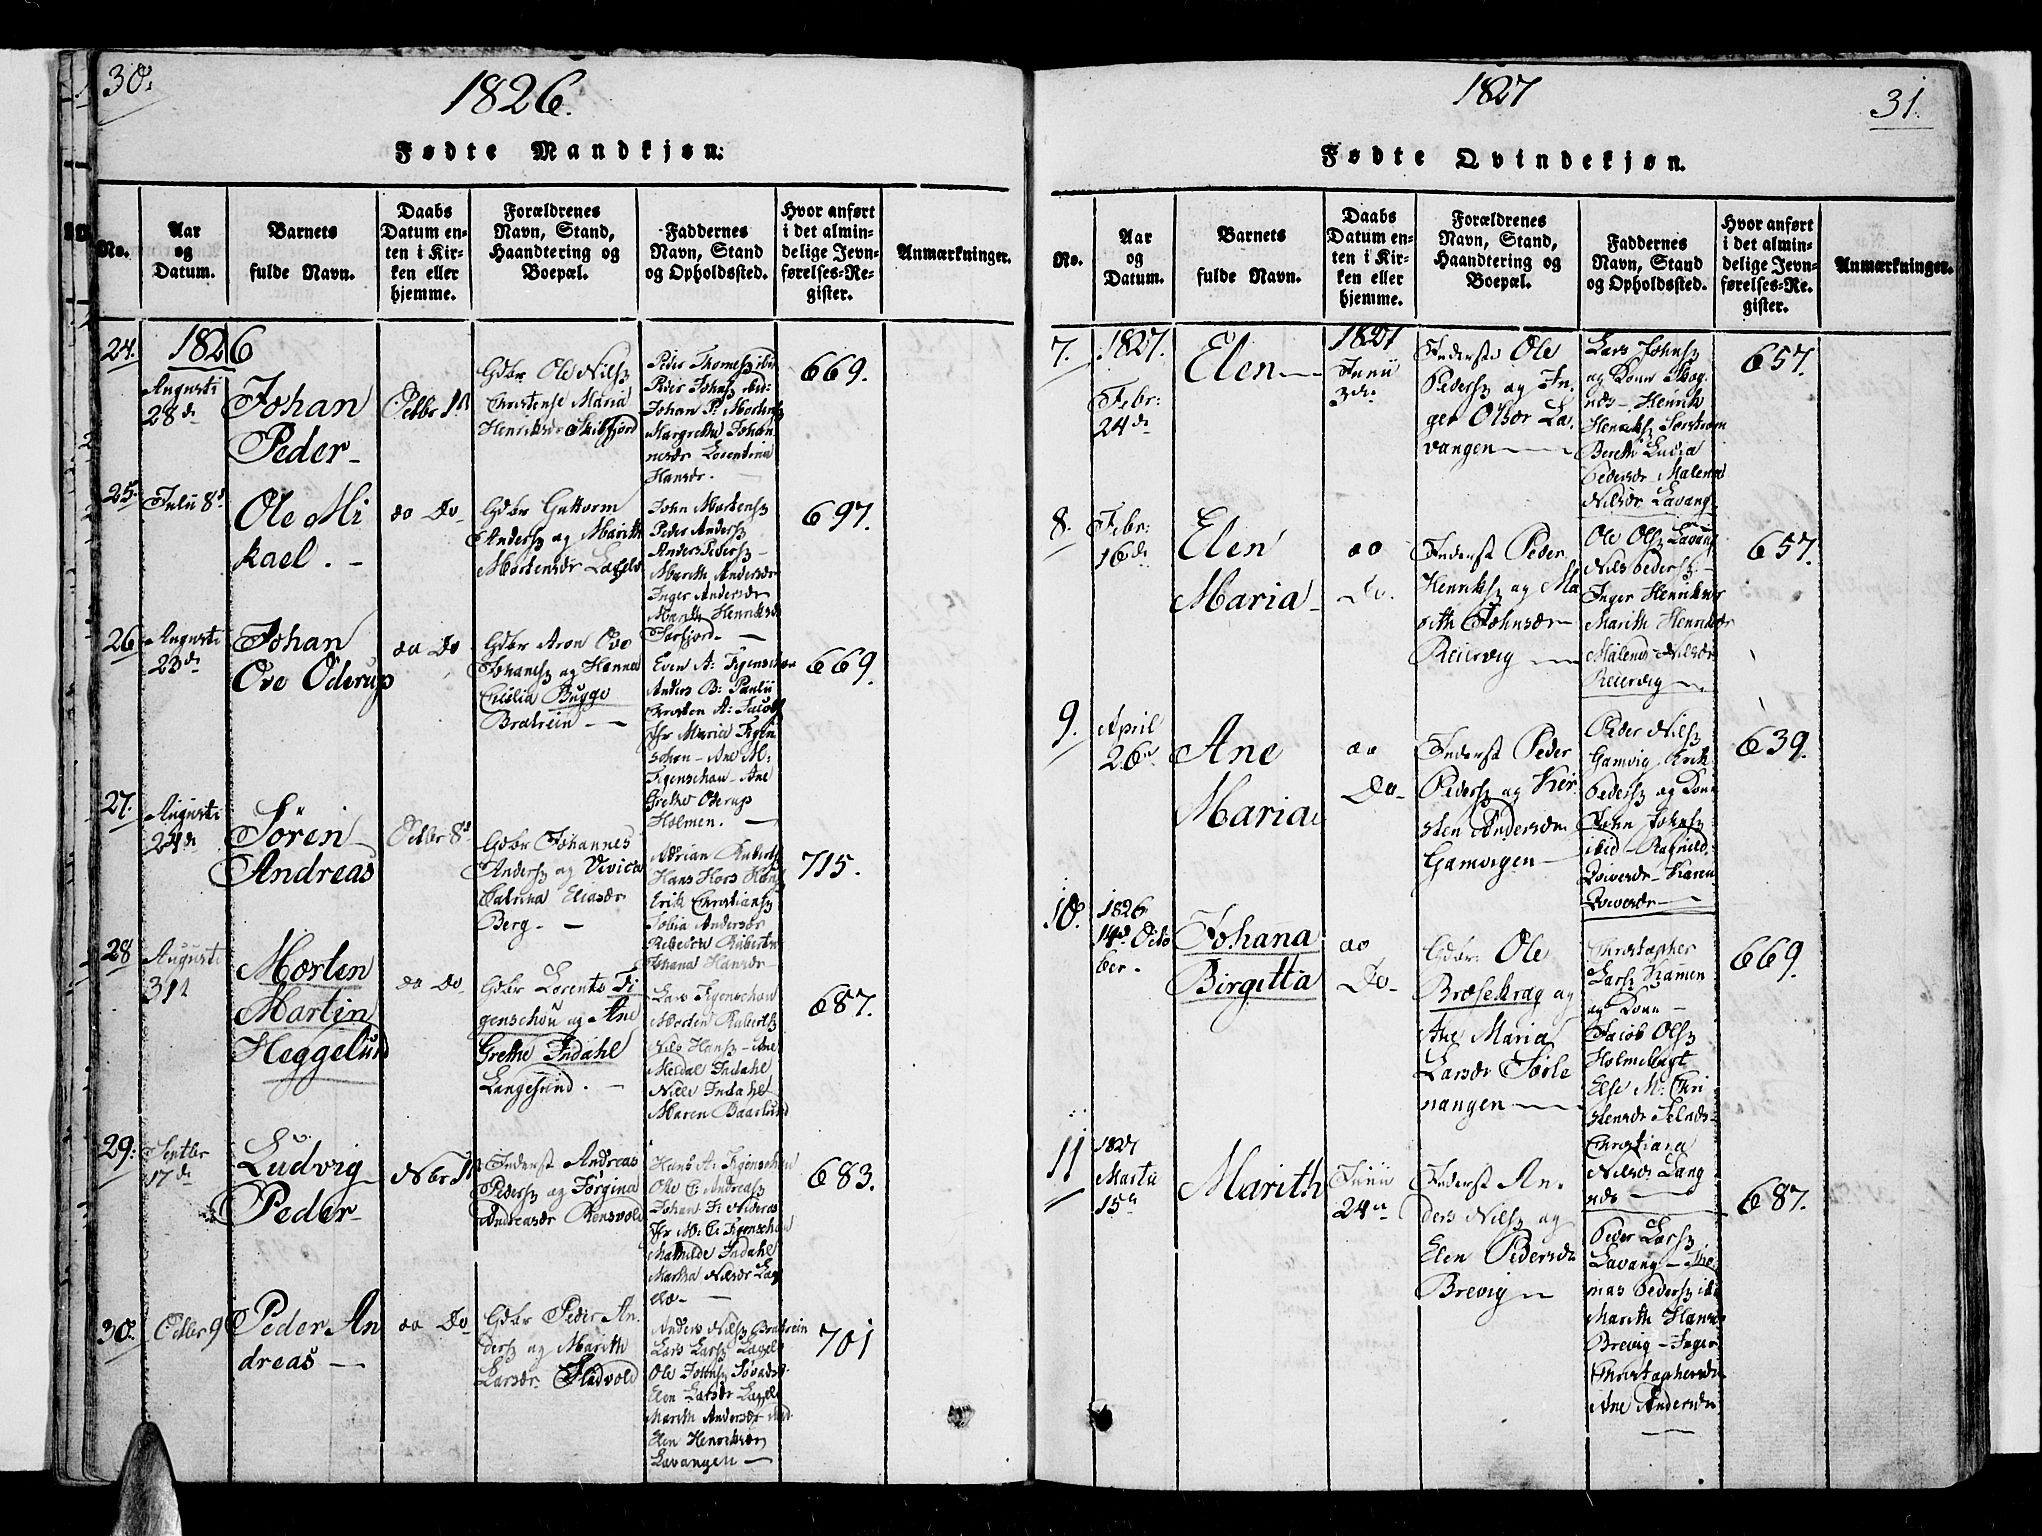 30.
1826.
Fødte Mandkjøn.
No.
Aar
og
Datum.
Barnets
fulde Navn.
Daabs
Datum en-
ten i Kir-
ken eller
hjemme.
Forældrenes
Navn, Stand,
Haandtering og
Boepæl.
Faddernes
Navn, Stand
og Opholdssted.
Hvor anført
i det almin-
delige Jevn-
førelses-Re-
gister.
Anmærkninger.
24.
1826
Augusti
28d
Johan
Peder
Octbr 1
Gdbr Ole Nilsen
Christense Maria
Henriksdr
Peder Thomesen ibid
Peder Johnsen ibid
Johan P. Mortensen
Margrethe Johan-
nesdr Lorentina
Hansdr
669.
25.
Julii 8d
Ole Mi
kael.
do Do
Gdbr Guttorm
Andersen og Marith
Mortensdr
John Mortensen
Peder Andersen
Anders Pedersen
Marith Andersdr
Inger Andersdr
Marith Henriksdr
697.
26
Augusti
23d
Johan
Ove Oderup
do Do
Gdbr Aron Ove
Johansen og Hanna
Cicilia Bugge
Bratrein
Even A: Figenschou
Anders B: Paulii
A: Jacobs
Jfr Maria Figen
schou - Ane M:
Figenschou - Ane
Grethe Oderup
Holmen.
669.
27.
Augusti
24d
Sören
Andreas
Octbr 8d
Gdbr Johannes
Andersen og Vivica
Catrina Eliasdr
Berg.
Adrian Robertsen
Hans
Erik Christiansen
Andersdr
Johana Hansdr
715.
28
Augusti
31t
Morten
Martin
Heggelund
do Do
Gdbr Lorents Fi
genschou og Ane
Grethe Indahl
Langesund.
Lars Figenschou
Morten Robertsen
Nils Hansen - Ane
Meldal Indahl
Niels Indahl
Maren Baarlund
687.
29.
Septbr
17d
Ludvig
Peder
Nbr 1
Inderst Andreas
Pedersen og Jorgina
Andreasdr Rensvold
Hans A: Figenschou
Ole C: Andreasen
Johan F: Andreas
Jfr M: C: Figenschou
Mathilde Indahl
Martha Nilsdr
683.
30.
Octbr 9
Peder An
dreas
do Do
Gdbr Peder An
dersen og Marith
Larsdr
Anders Nilsen Bratrein
Lars Larsen
Ole Johnsen
Elen Larsdr
Marith Andersdr
Elen Henriksdr
Lavangen
701
1827
31.
Fødte Qvindekjøn.
No.
Aar
og
Datum.
Barnets
fulde Navn.
Daabs
Datum en-
ten i Kir-
ken eller
hjemme.
Forældrenes
Navn, Stand,
Haandtering og
Boepæl.
Faddernes
Navn, Stand
og Opholdssted.
Hvor anført
i det almin-
delige Jevn-
førelses-Re-
gister.
Anmærkninger.
7.
1827.
Febr:
24d
Elen
1827
Junii
3die
Inderste Ole
Pedersen og In-
ger Olsdr La-
vangen
Lars Johnsen
og Kone Skog-
næs - Henrik
Henriksen
Bereth Ludia
Pedersdr Malena
Nilsdr Lavang
657.
8.
Febr:
16d
Elen
Maria
do
Do.
Inderst Peder
Henriksen og Ma
rith Johnsdr
Reiervig
Ole Olsen Lavang
Nils Pedersen
Inger Henriksdr
Marith Henriksdr
Malena Nilsdr
Reiervig
657.
9.
April
26d
Ane
Maria
do
Do
Inderst Peder
Pedersen og Kier
sten Andersdr
Gamvigen
Peder Nilsen
Gamvig - Erik
Pedersen og Kone
John Johnsen
ibid - Ragnild
Iversdr - Karen
Iversdr
639.
10.
1826
14d Octo
ber.
Johana
Birgitta
do
Do
Gdbr: Ole
Brosekrag og
Ane Maria
Larsdr Sörle
nangen
Christopher
Larsen
og Kone
Jacob Olsen
Else M: Chri
stensdr
Christiana
Nilsdr Lang
næs
669.
11
1827
Martii
15d
Marith
Junii
24d
Inderst An-
ders Nilsen og
Elen Pedersdr
Brevig
Peder Larsen
Lavang - Tho
mas Pedersen ibid
Marith Hansdr
Brevig - Inger
Christophersdr
Ane Andersdr
687.